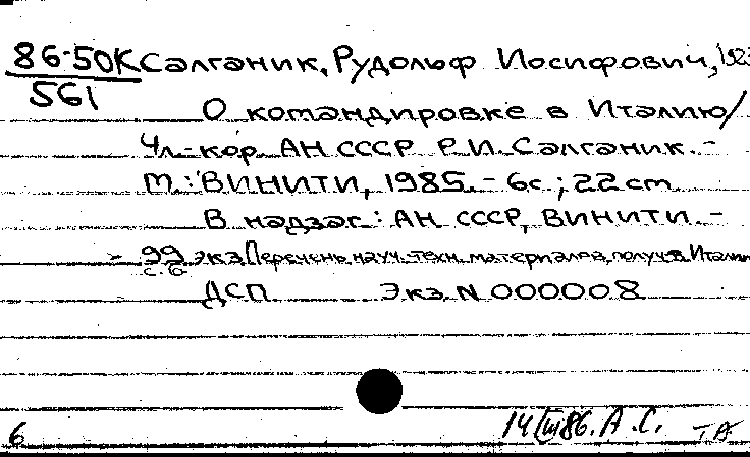 86-50К Салганик, Рудольф Иосифович, 1923
561
О командировке в Италию/
Чл.-кор. АН СССР Р.И. Салганик. -
М.: ВИНИТИ, 1985. - 6с; 22 см
В надзаг.: АН СССР, ВИНИТИ. -
99 экз. Перечень науч.-техн. материалов, получ. в Италии
с. 6
ДСП Экз N 000008
6 14/III 86. А.С.